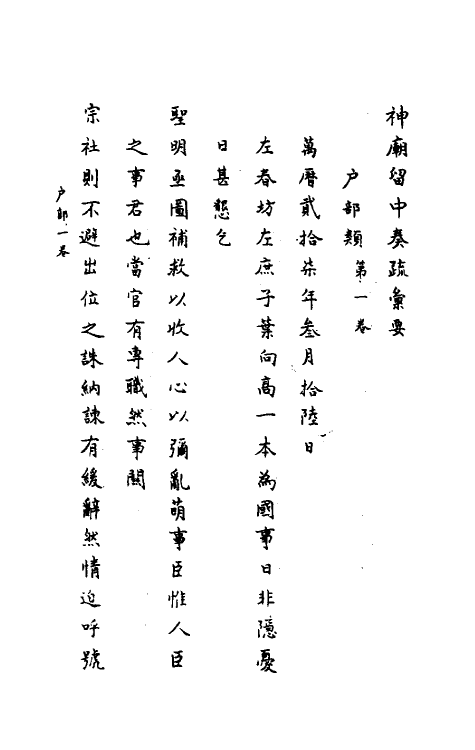 神廟留中奏疏彙要
户部類 第一卷
萬曆貳拾柒年叁月拾陸日
左春坊左庶子葉向高一本為國事日非隱憂
日甚懇乞
聖明亟圖補救以收人心以彌亂萌事臣惟人臣
之事君也當官有專職然事關
宗社則不避出位之誅納諌有緩辭然情迫呼號
户部一卷